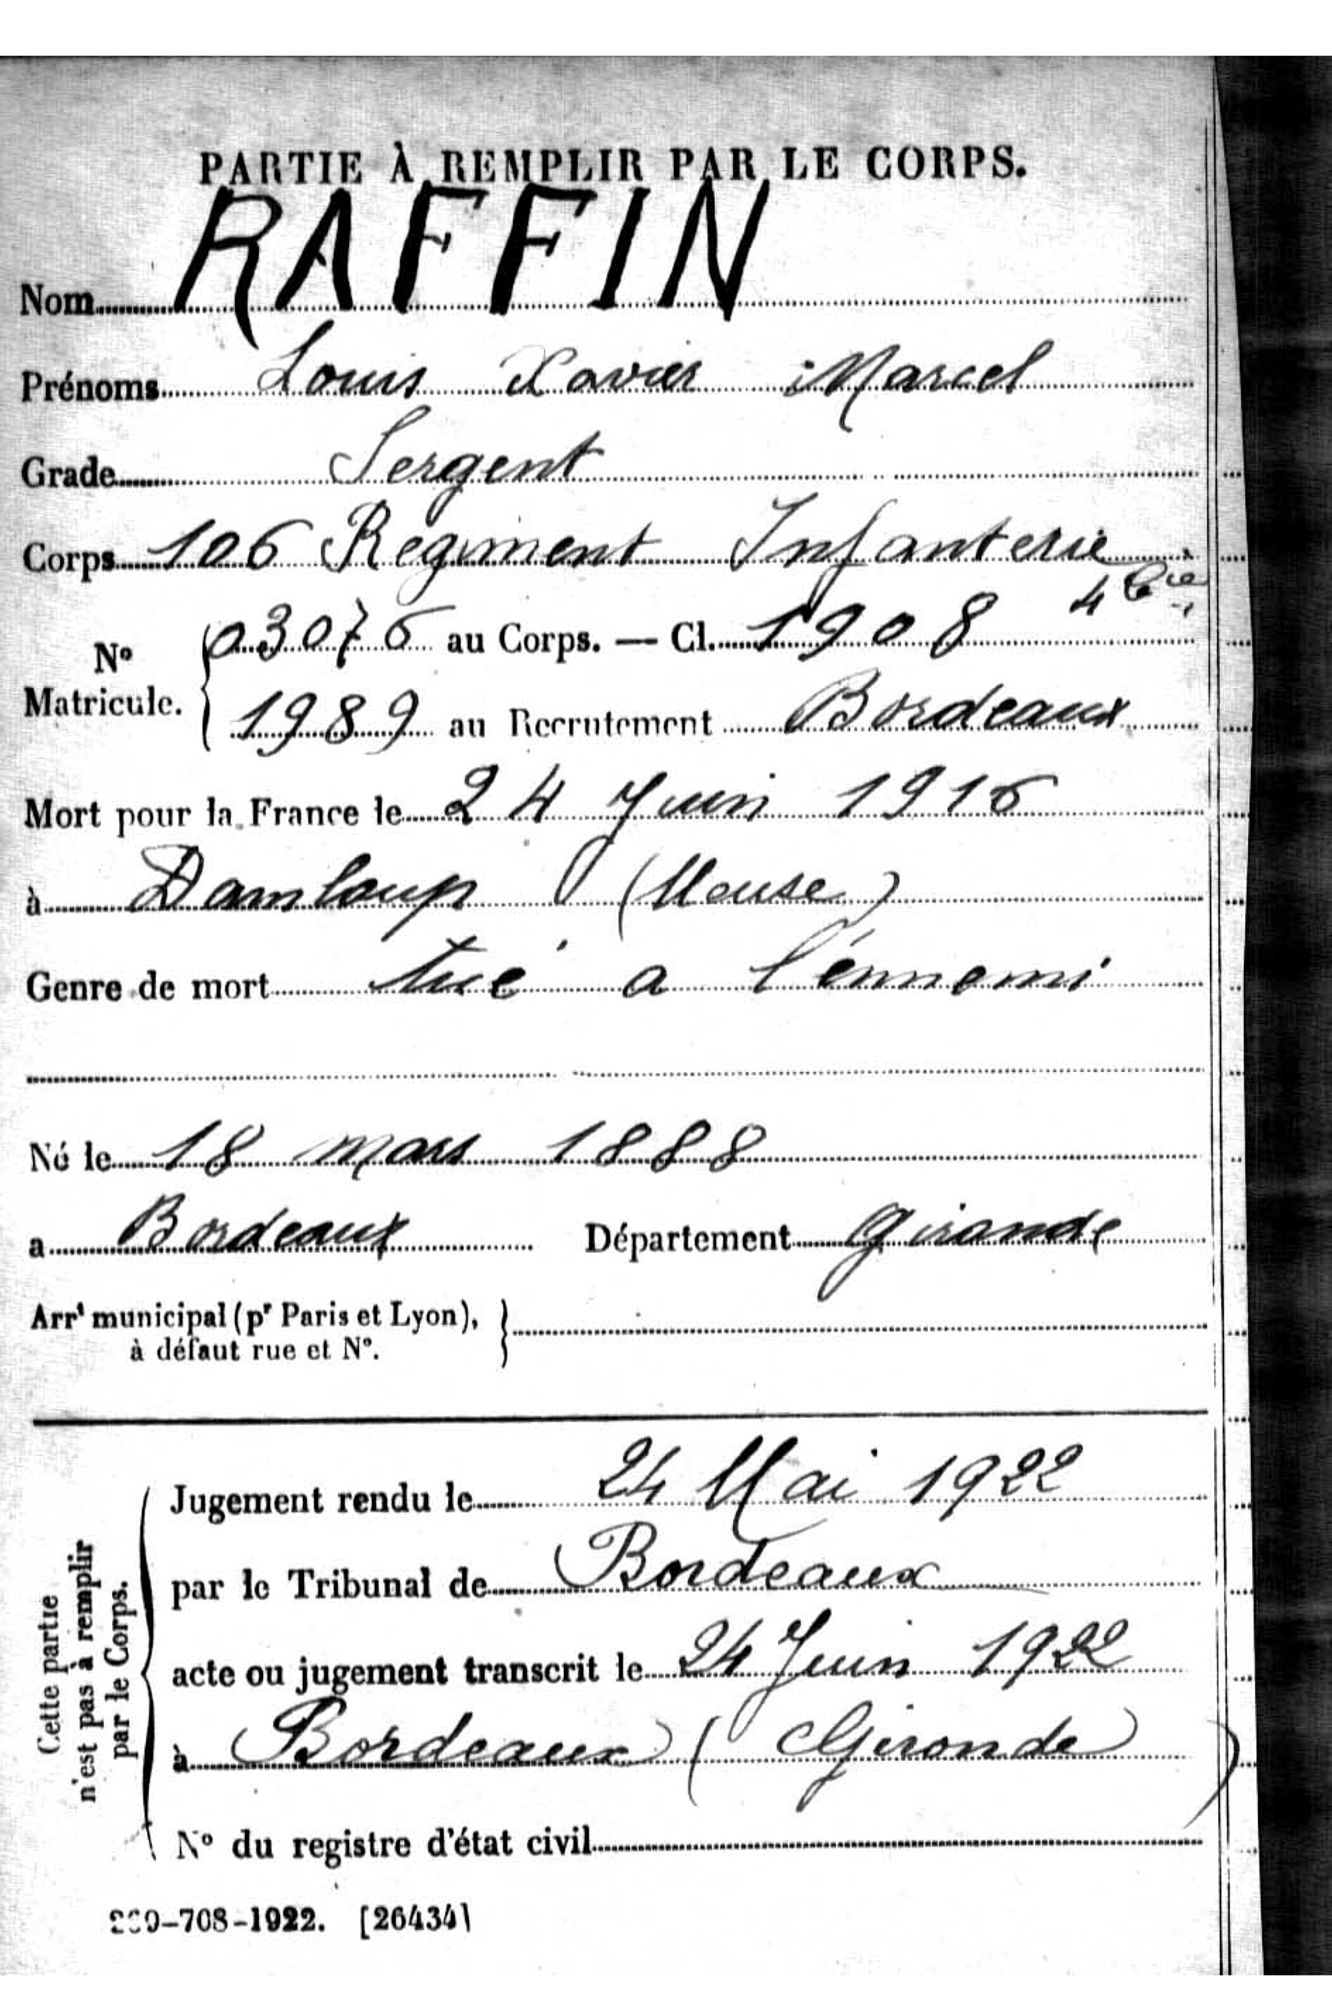 PARTIE À REMPLIR PAR LE CORPS.
Nom RAFFIN
Prénoms Louis Xavier Marcel
Grade Sergent
Corps 106 Regiment Infanterie
4 Cie
03076 au Corps. — Cl. 1908
N° Matricule.
1989 au Recrutement Bordeaux
Mort pour la France le 24 Juin 1916
à Damloup (Meuse)
Genre de mort tué a l'énnemi
Né le 18 mars 1888
a Bordeaux Département Gironde
Arrt municipal (pr Paris et Lyon),
à défaut rue et N°.
Jugement rendu le 24 Mai 1922
par le Tribunal de Bordeaux
acte ou jugement transcrit le 24 Juin 1922
à Bordeaux (Gironde)
N° du registre d'état civil
Cette partie
n'est pas à remplir
par le Corps.
-708-1922. [26434]